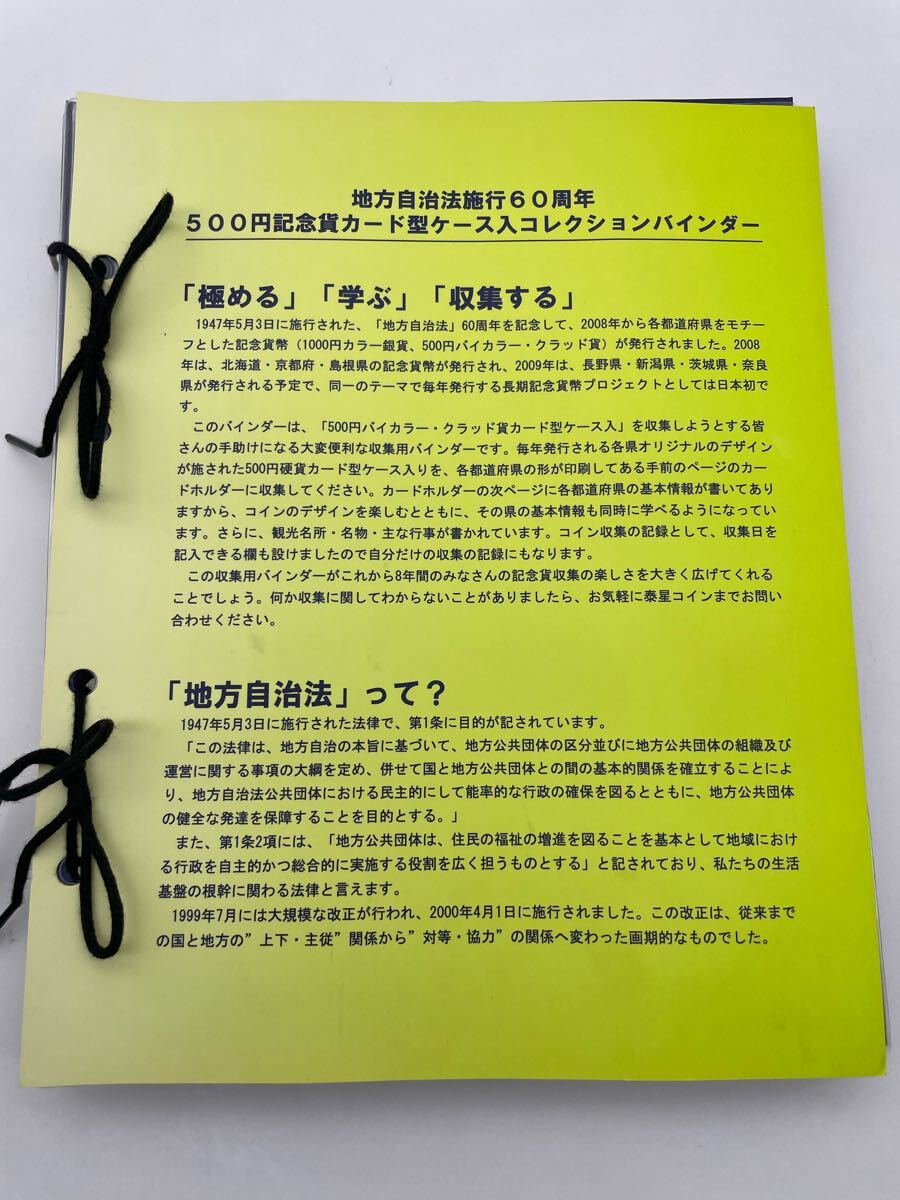 地方自治法施行６０周年
５００円記念貨カード型ケース入コレクションバインダー
「極める」「学ぶ」「収集する」
1947年5月3日に施行された、「地方自治法」60周年を記念して、2008年から各都道府県をモチー
フとした記念貨幣（1000円カラー銀貨、500円バイカラー・クラッド貨）が発行されました。2008
年は、北海道・京都府・島根県の記念貨幣が発行され、2009年は、長野県・新潟県・茨城県・奈良
県が発行される予定で、同一のテーマで毎年発行する長期記念貨幣プロジェクトとしては日本初で
す。
このバインダーは、「500円バイカラー・クラッド貨カード型ケース入」を収集しようとする皆
さんの手助けになる大変便利な収集用バインダーです。毎年発行される各県オリジナルのデザイン
が施された500円硬貨カード型ケース入りを、各都道府県の形が印刷してある手前のページのカー
ドホルダーに収集してください。カードホルダーの次ページに各都道府県の基本情報が書いてあり
ますから、コインのデザインを楽しむとともに、その県の基本情報も同時に学べるようになってい
ます。さらに、観光名所・名物・主な行事が書かれています。コイン収集の記録として、収集日を
記入できる欄も設けましたので自分だけの収集の記録にもなります。
この収集用バインダーがこれから8年間のみなさんの記念貨収集の楽しさを大きく広げてくれる
ことでしょう。何か収集に関してわからないことがありましたら、お気軽に泰星コインまでお問い
合わせください。
「地方自治法」って？
1947年5月3日に施行された法律で、第1条に目的が記されています。
「この法律は、地方自治の本旨に基づいて、地方公共団体の区分並びに地方公共団体の組織及び
運営に関する事項の大綱を定め、併せて国と地方公共団体との間の基本的関係を確立することによ
り、地方自治法公共団体における民主的にして能率的な行政の確保を図るとともに、地方公共団体
の健全な発達を保障することを目的とする。」
また、第1条2項には、「地方公共団体は、住民の福祉の増進を図ることを基本として地域におけ
る行政を自主的かつ総合的に実施する役割を広く担うものとする」と記されており、私たちの生活
基盤の根幹に関わる法律と言えます。
1999年7月には大規模な改正が行われ、2000年4月1日に施行されました。この改正は、従来まで
の国と地方の”上下・主従”関係から”対等・協力”の関係へ変わった画期的なものでした。